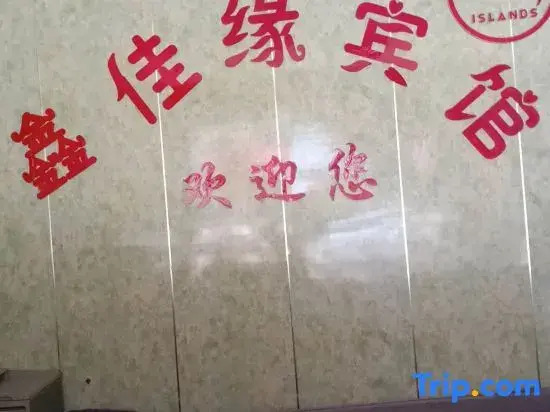 鑫佳缘宾馆
欢迎您
ISLANDS
Trip.com